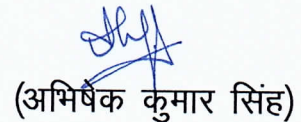 (अभिषेक कुमार सिंह)